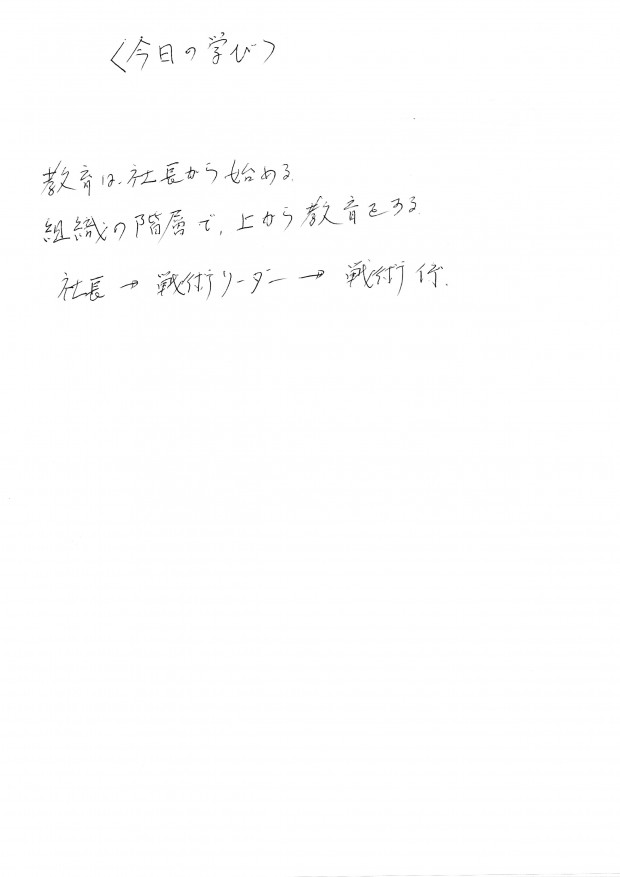 〈今日の学び〉
教育は、社長から始める。
組織の階層で、上から教育をする。
社長 → 戦術リーダー → 戦術